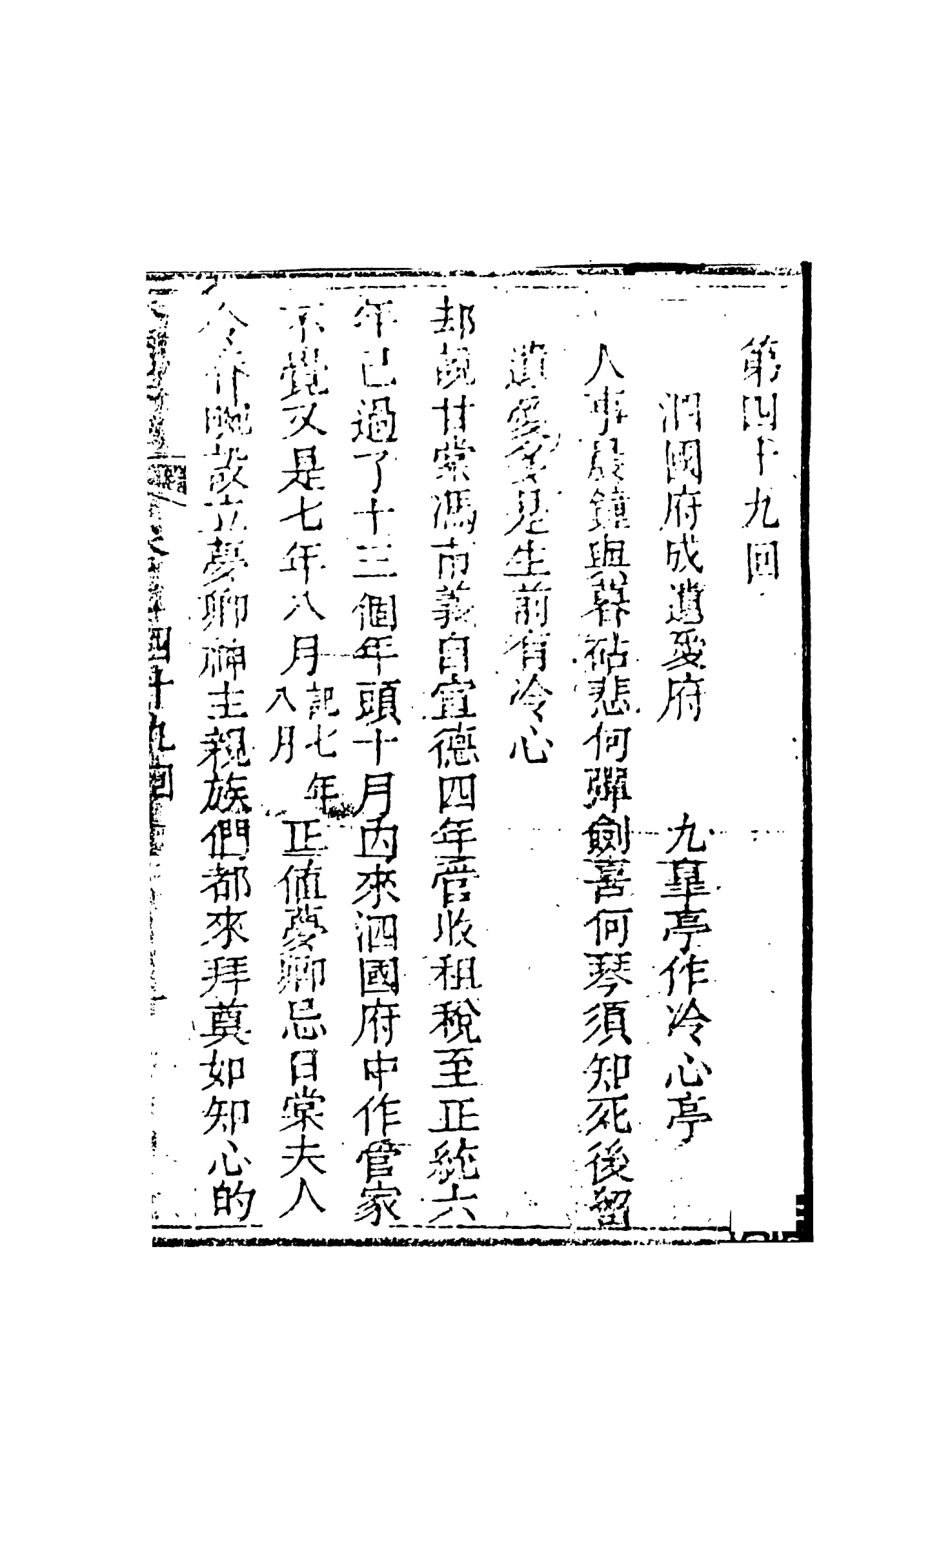 第四十九回
泗國府成遺愛府　九臯亭作冷心亭
人事晨鐘與暮砧悲何彈劍喜何琴須知死後留
遺愛要見生前有冷心
却說甘棠馮市義自宣德四年管收租稅至正統六
年已過了十三個年頭十月內來泗國府中作管家
不覺又是七年八月記七年八月正值夢卿忌日棠夫人
令春畹設立夢卿神主親族們都來拜奠如知心的
四十九回